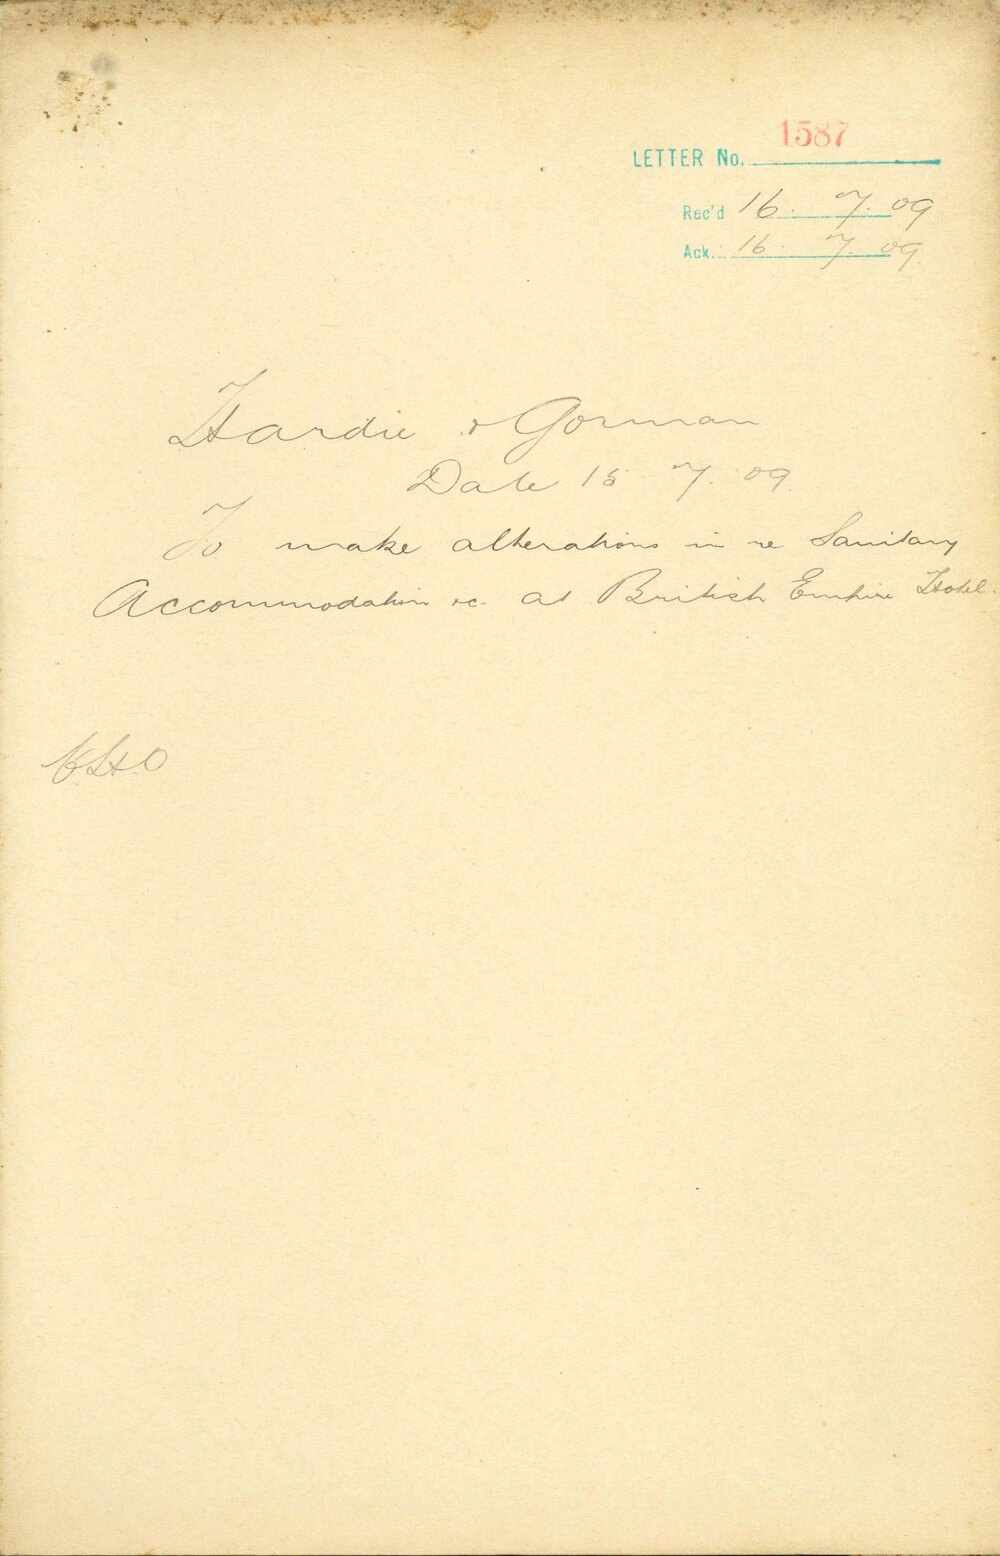 1587
LETTER No.
Rec'd 16. 7. 09
Ack. 16. 7. 09
Hardie & Gorman
Date 15. 7. 09.
To make alterations in re Sanitary
Accommodation &c. at British Empire Hotel.
C.H.O